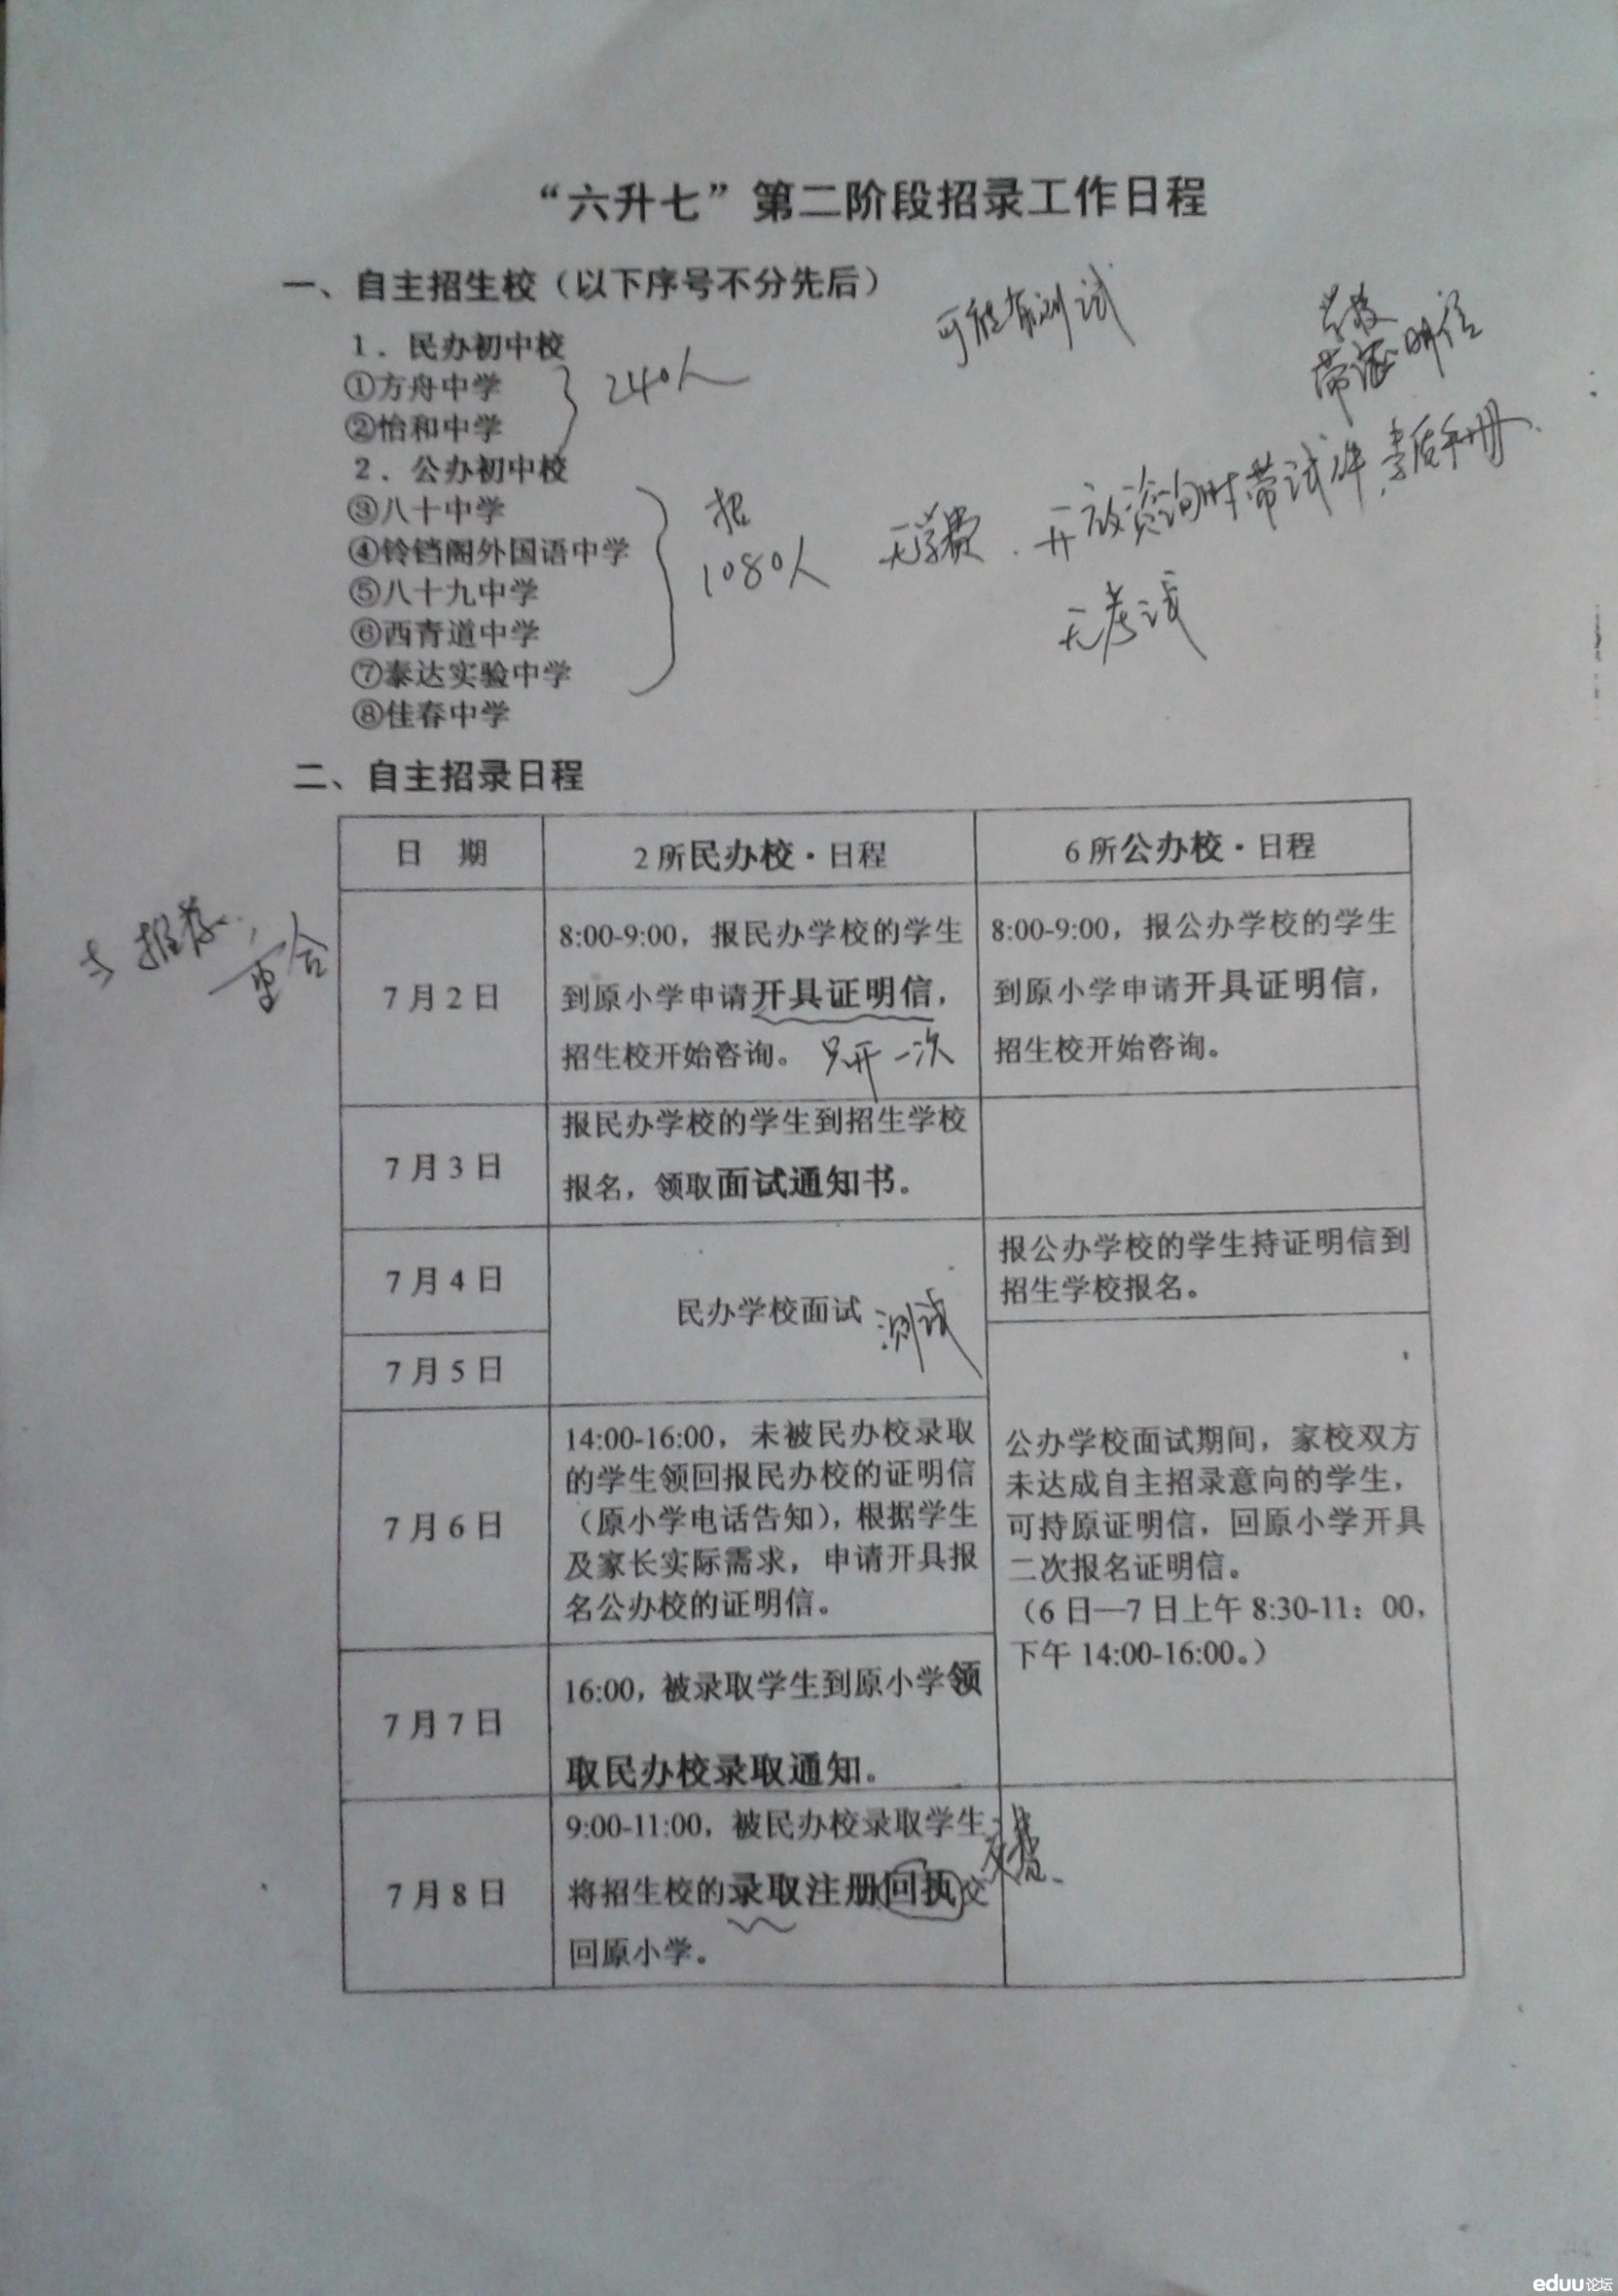 “六升七”第二阶段招录工作日程
一、自主招生校（以下序号不分先后）
可能有测试
1．民办初中校
①方舟中学
②怡和中学
240人
带证明信
2．公办初中校
③八十中学
④铃铛阁外国语中学
⑤八十九中学
⑥西青道中学
⑦泰达实验中学
⑧佳春中学
招
1080人
无学费．开放资询时带
手册
无考试
二、自主招录日程
日 期
2所民办校·日程
6所公办校·日程
与推荐
重合
7月2日
8:00-9:00，报民办学校的学生
到原小学申请开具证明信，
招生校开始咨询。 只开一次
8:00-9:00，报公办学校的学生
到原小学申请开具证明信，
招生校开始咨询。
7月3日
报民办学校的学生到招生学校
报名，领取面试通知书。
7月4日
7月5日
民办学校面试 测试
报公办学校的学生持证明信到
招生学校报名。
7月6日
14:00-16:00，未被民办校录取
的学生领回报民办校的证明信
（原小学电话告知），根据学生
及家长实际需求，申请开具报
名公办校的证明信。
公办学校面试期间，家校双方
未达成自主招录意向的学生，
可持原证明信，回原小学开具
二次报名证明信。
（6日—7日上午8:30-11：00，
下午14:00-16:00。）
7月7日
16:00，被录取学生到原小学领
取民办校录取通知。
7月8日
9:00-11:00，被民办校录取学生
将招生校的录取注册回执交
回原小学。
eduu论坛